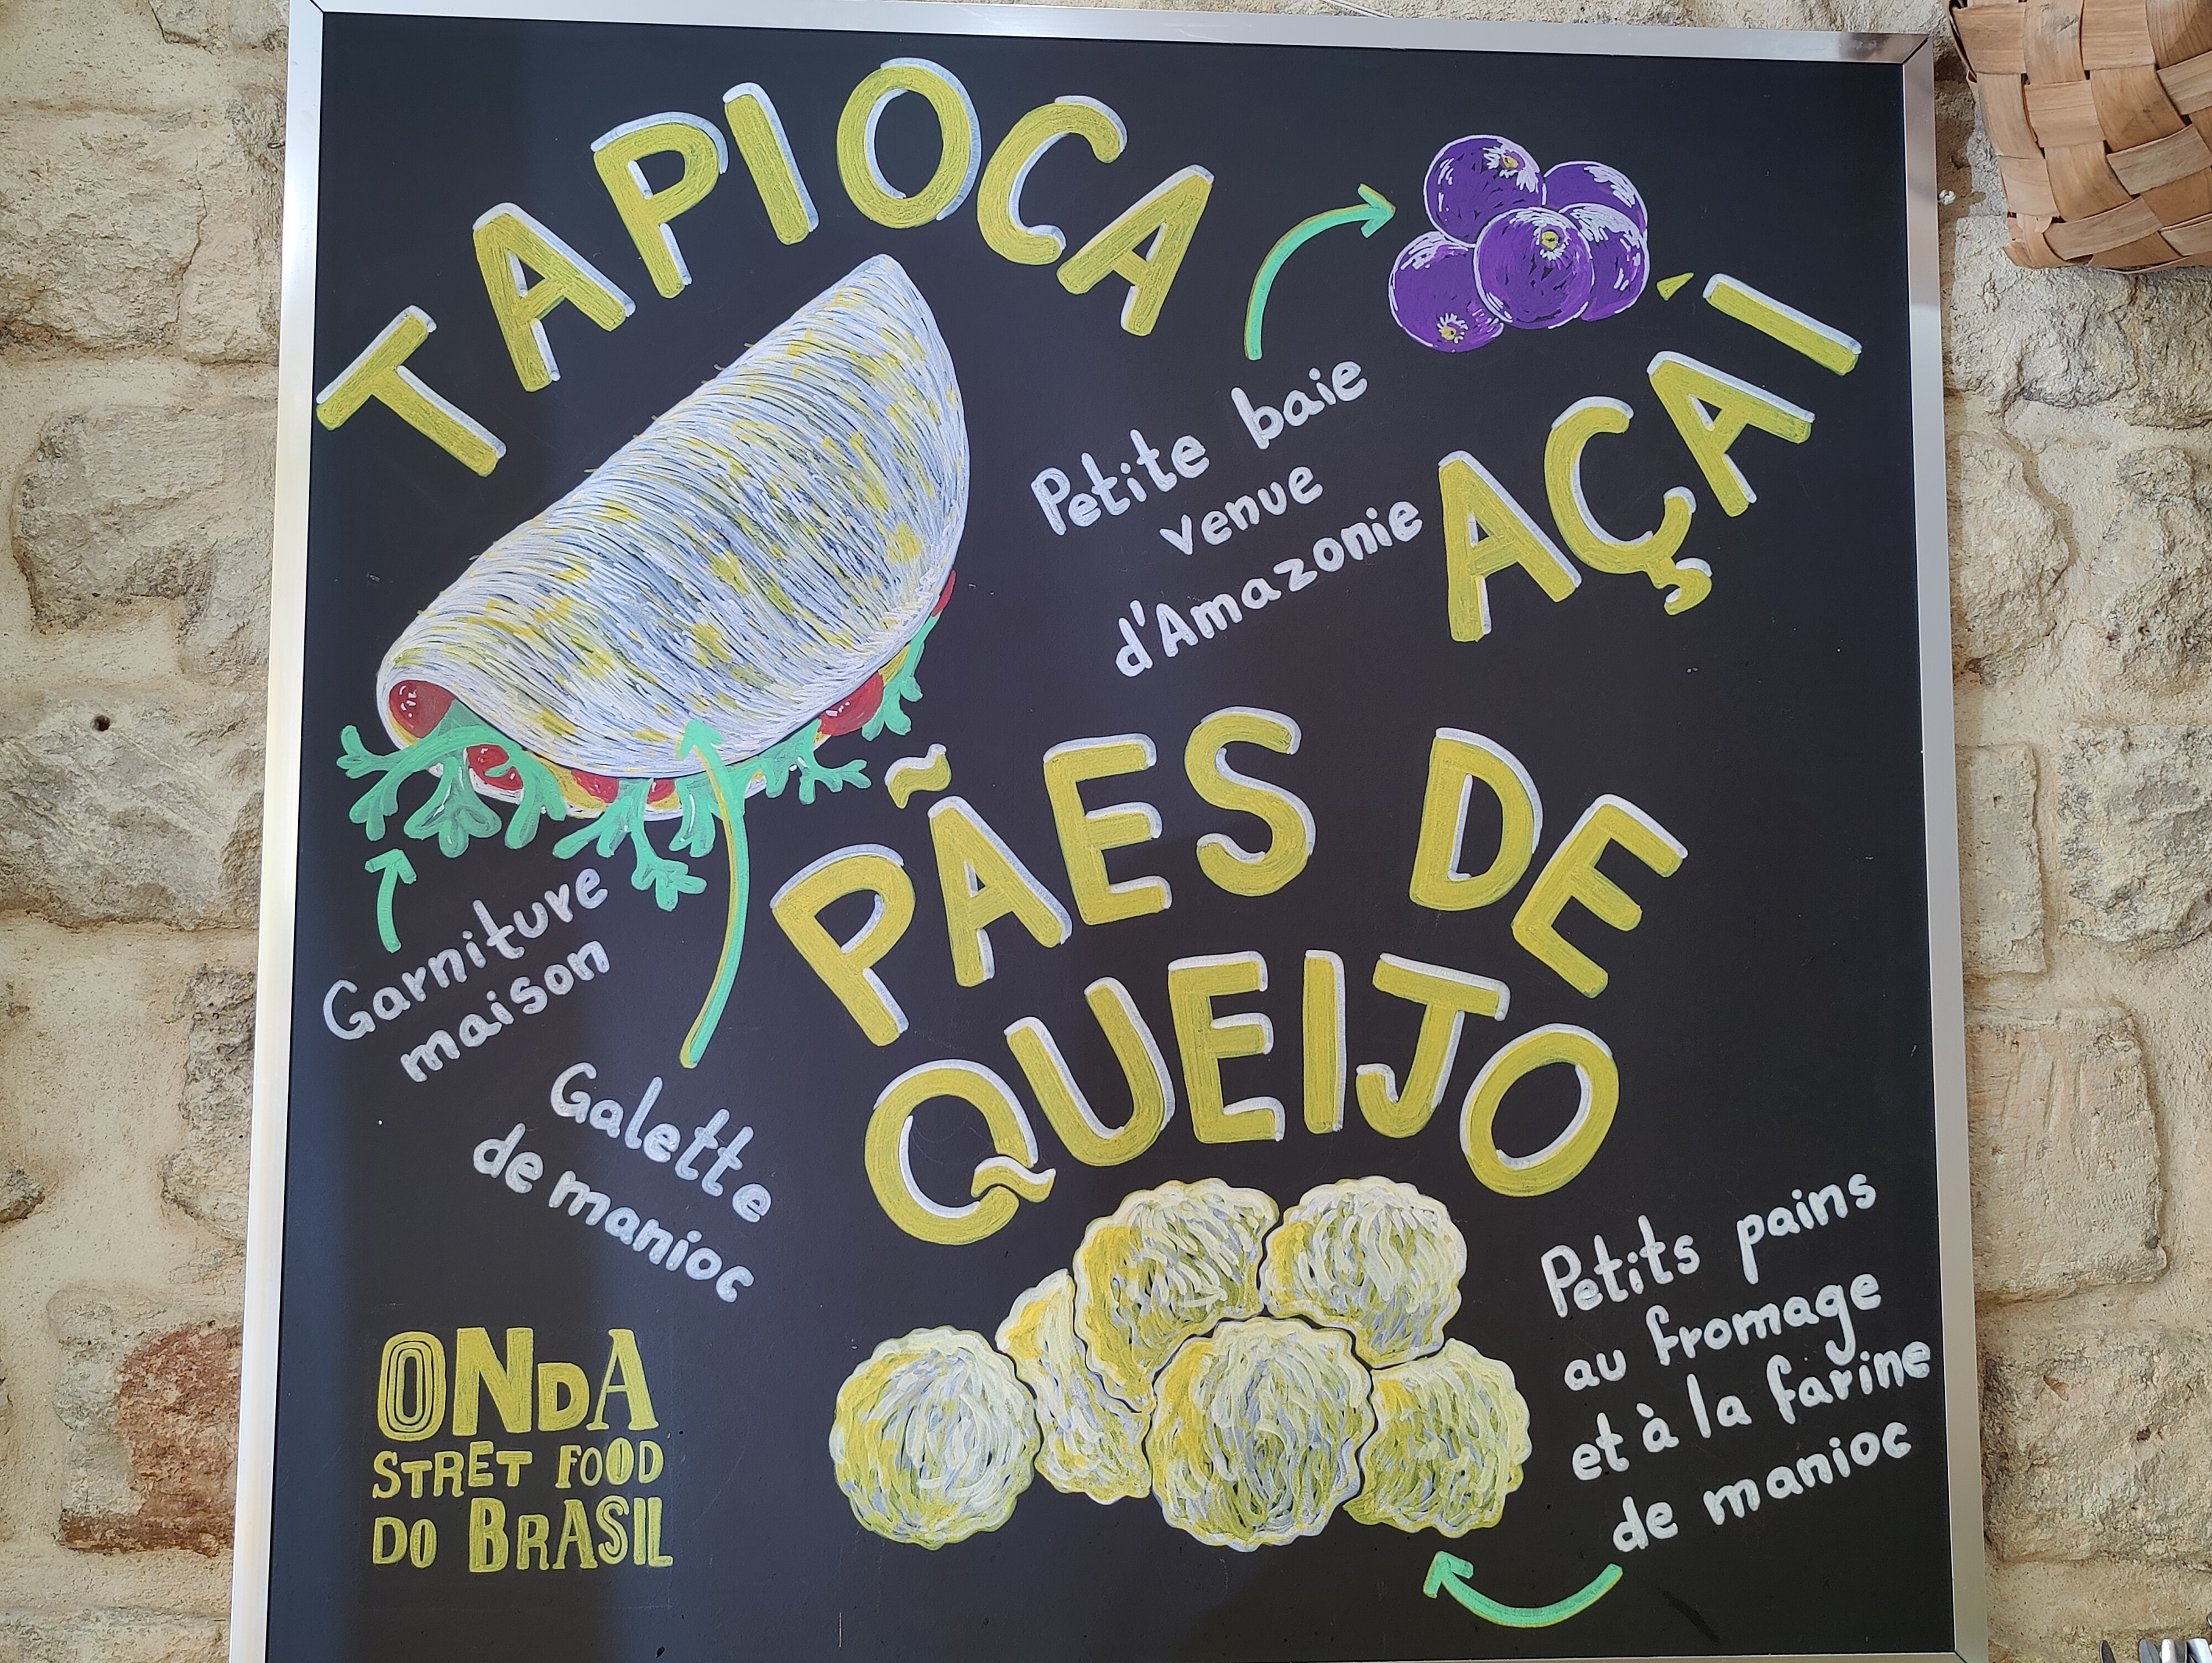 TAPIOCA
Petite baie
venue
d'Amazonie
AÇAÍ
Garniture
maison
Galette
de manioc
PÃES DE
QUEIJO
Petits pains
au fromage
et à la farine
de manioc
ONDA
STRET FOOD
DO BRASIL